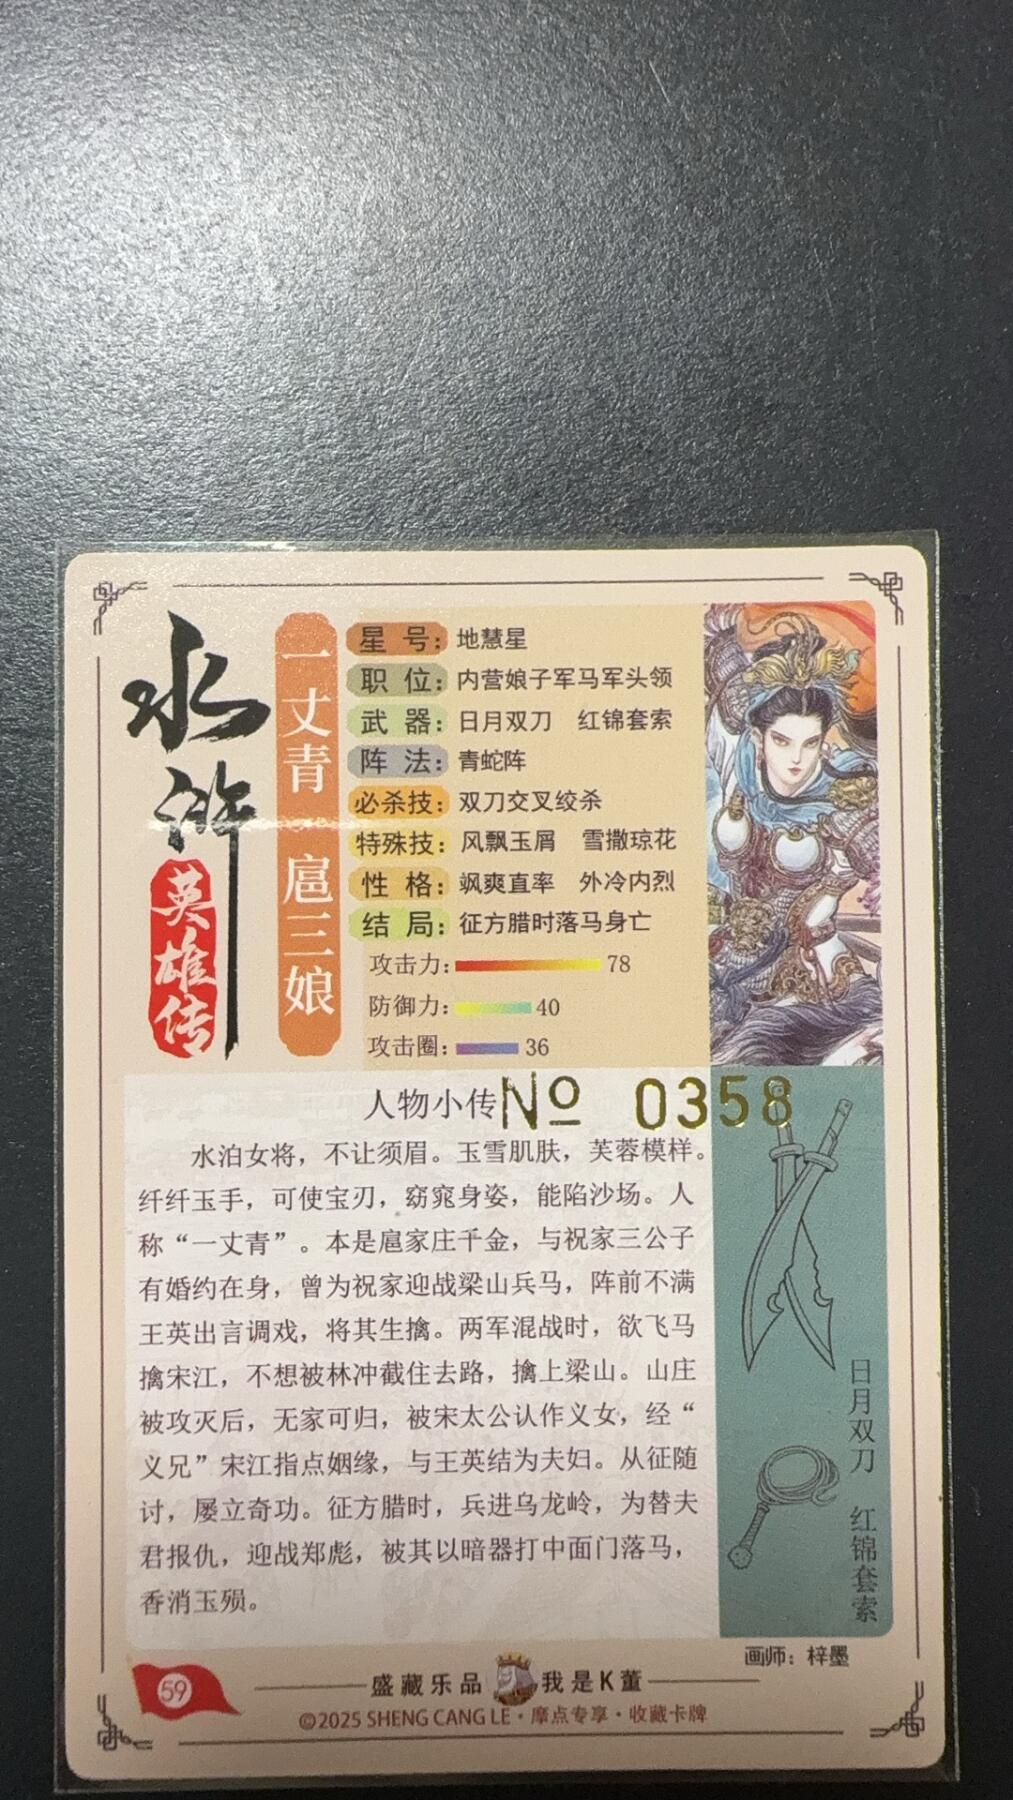 水浒
英雄传
一丈青 扈三娘
星号：地慧星
职位：内营娘子军马军头领
武器：日月双刀 红锦套索
阵法：青蛇阵
必杀技：双刀交叉绞杀
特殊技：风飘玉屑 雪撒琼花
性格：飒爽直率 外冷内烈
结局：征方腊时落马身亡
攻击力：78
防御力：40
攻击圈：36
人物小传
№ 0358
水泊女将，不让须眉。玉雪肌肤，芙蓉模样。
纤纤玉手，可使宝刃，窈窕身姿，能陷沙场。人
称“一丈青”。本是扈家庄千金，与祝家三公子
有婚约在身，曾为祝家迎战梁山兵马，阵前不满
王英出言调戏，将其生擒。两军混战时，欲飞马
擒宋江，不想被林冲截住去路，擒上梁山。山庄
被攻灭后，无家可归，被宋太公认作义女，经“
义兄”宋江指点姻缘，与王英结为夫妇。从征随
讨，屡立奇功。征方腊时，兵进乌龙岭，为替夫
君报仇，迎战郑彪，被其以暗器打中面门落马，
香消玉殒。
日月双刀 红锦套索
画师：梓墨
59
盛藏乐品 我是K董
©2025 SHENG CANG LE·摩点专享·收藏卡牌